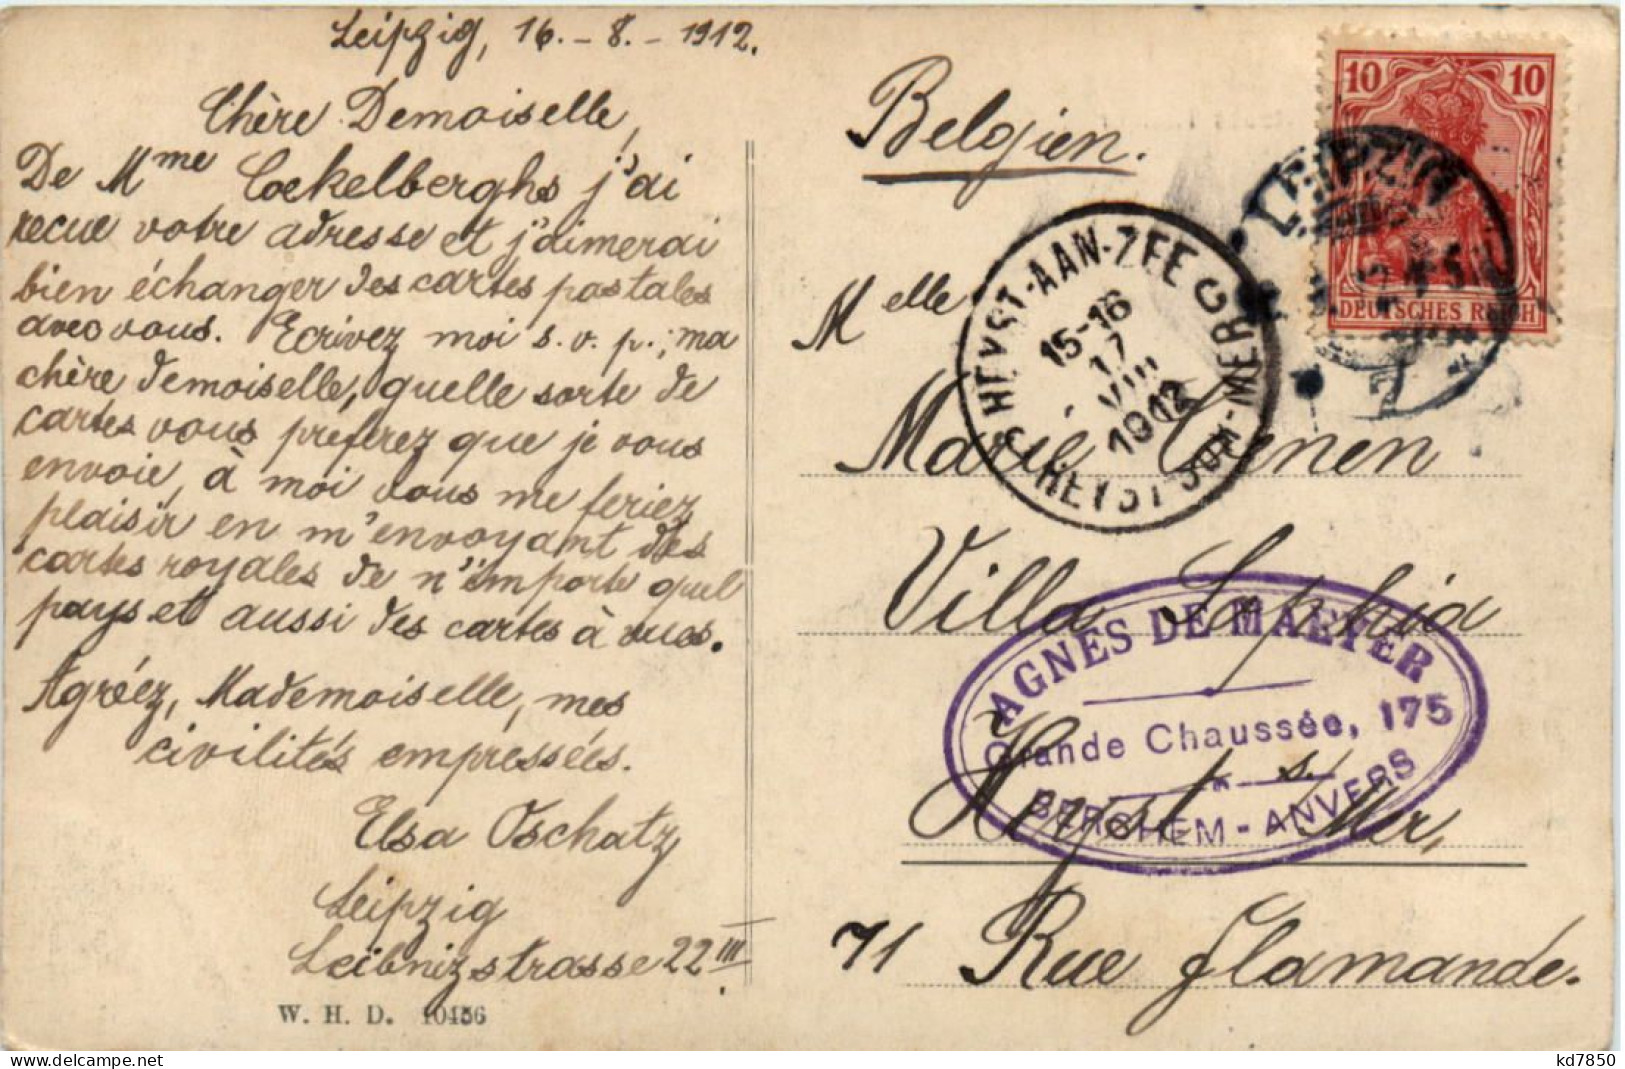 Leipzig, 16. - 8. - 1912.
Chère Demoiselle,
De Mme Cockelberghs j'ai
recue votre adresse et j'aimerai
bien échanger des cartes postales
avec vous. Ecrivez moi s. v. p.; ma
chère demoiselle, quelle sorte de
cartes vous preferez que je vous
envoie, à moi vous me feriez
plaisir en m'envoyant des
cartes royales de n'importe quel
pays et aussi des cartes à vues.
Agréez, Mademoiselle, mes
civilités empressées.
Elsa Oschatz
Leipzig
Leibnizstrasse 22 III
W. H. D. 10456
Belgien.
10 10
DEUTSCHES REICH
LEIPZIG
HEYST-AAN-ZEE
15-16
17
VIII
1912
HEYST-SUR-MER
Melle
Marie
Villa Sophia
Heyst s. Mer,
71 Rue flamande.
AGNES DE MAEYER
Grande Chaussée, 175
BERCHEM - ANVERS
kd7850